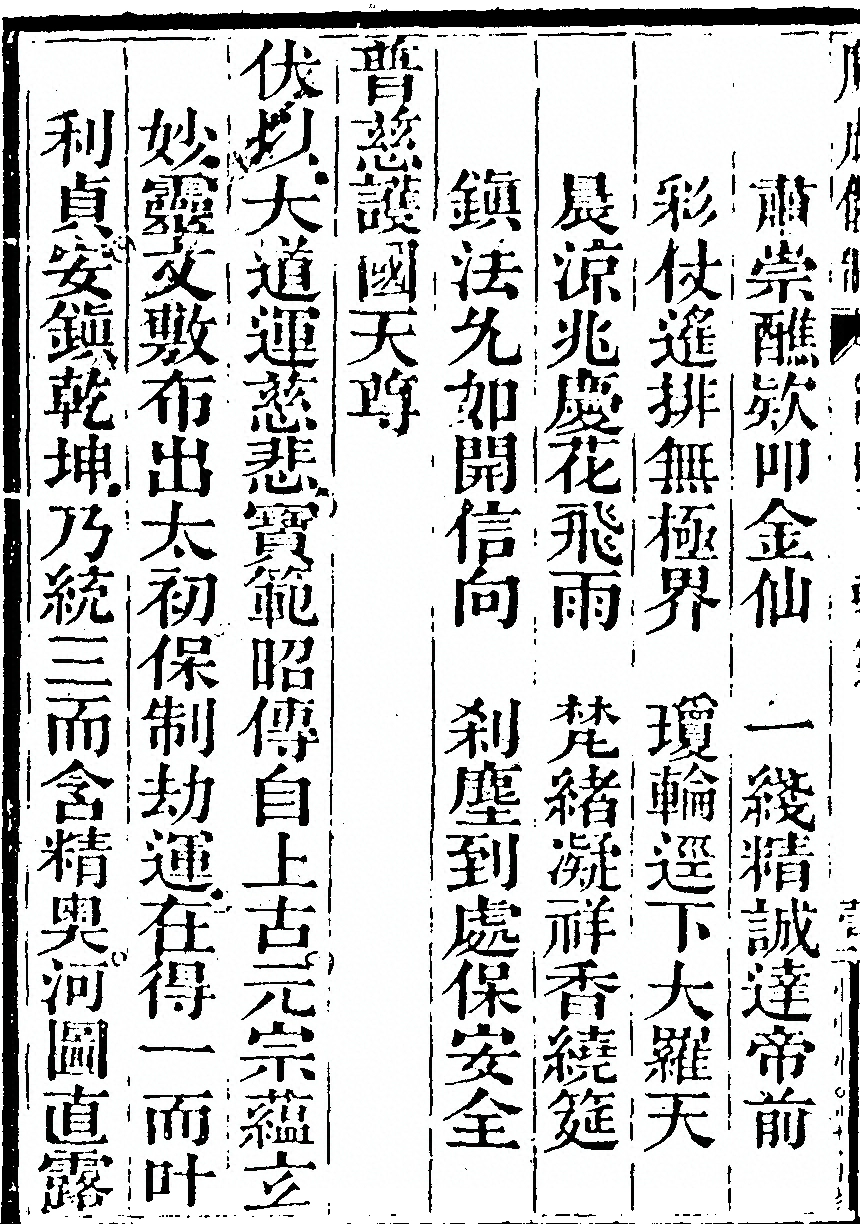 肅崇醮欵叩金仙　一綫精誠達帝前
彩仗遙排無極界　瓊輪逕下大羅天
晨涼兆慶花飛雨　梵緒凝祥香繞筵
鎮法允如開信向　刹塵到處保安全
普慈護國天尊
伏以大道運慈悲寶範昭傳自上古元宗蘊立
妙靈文敷布出太初保制劫運在得一而叶
利貞安鎮乾坤乃統三而含精奧河圖直露